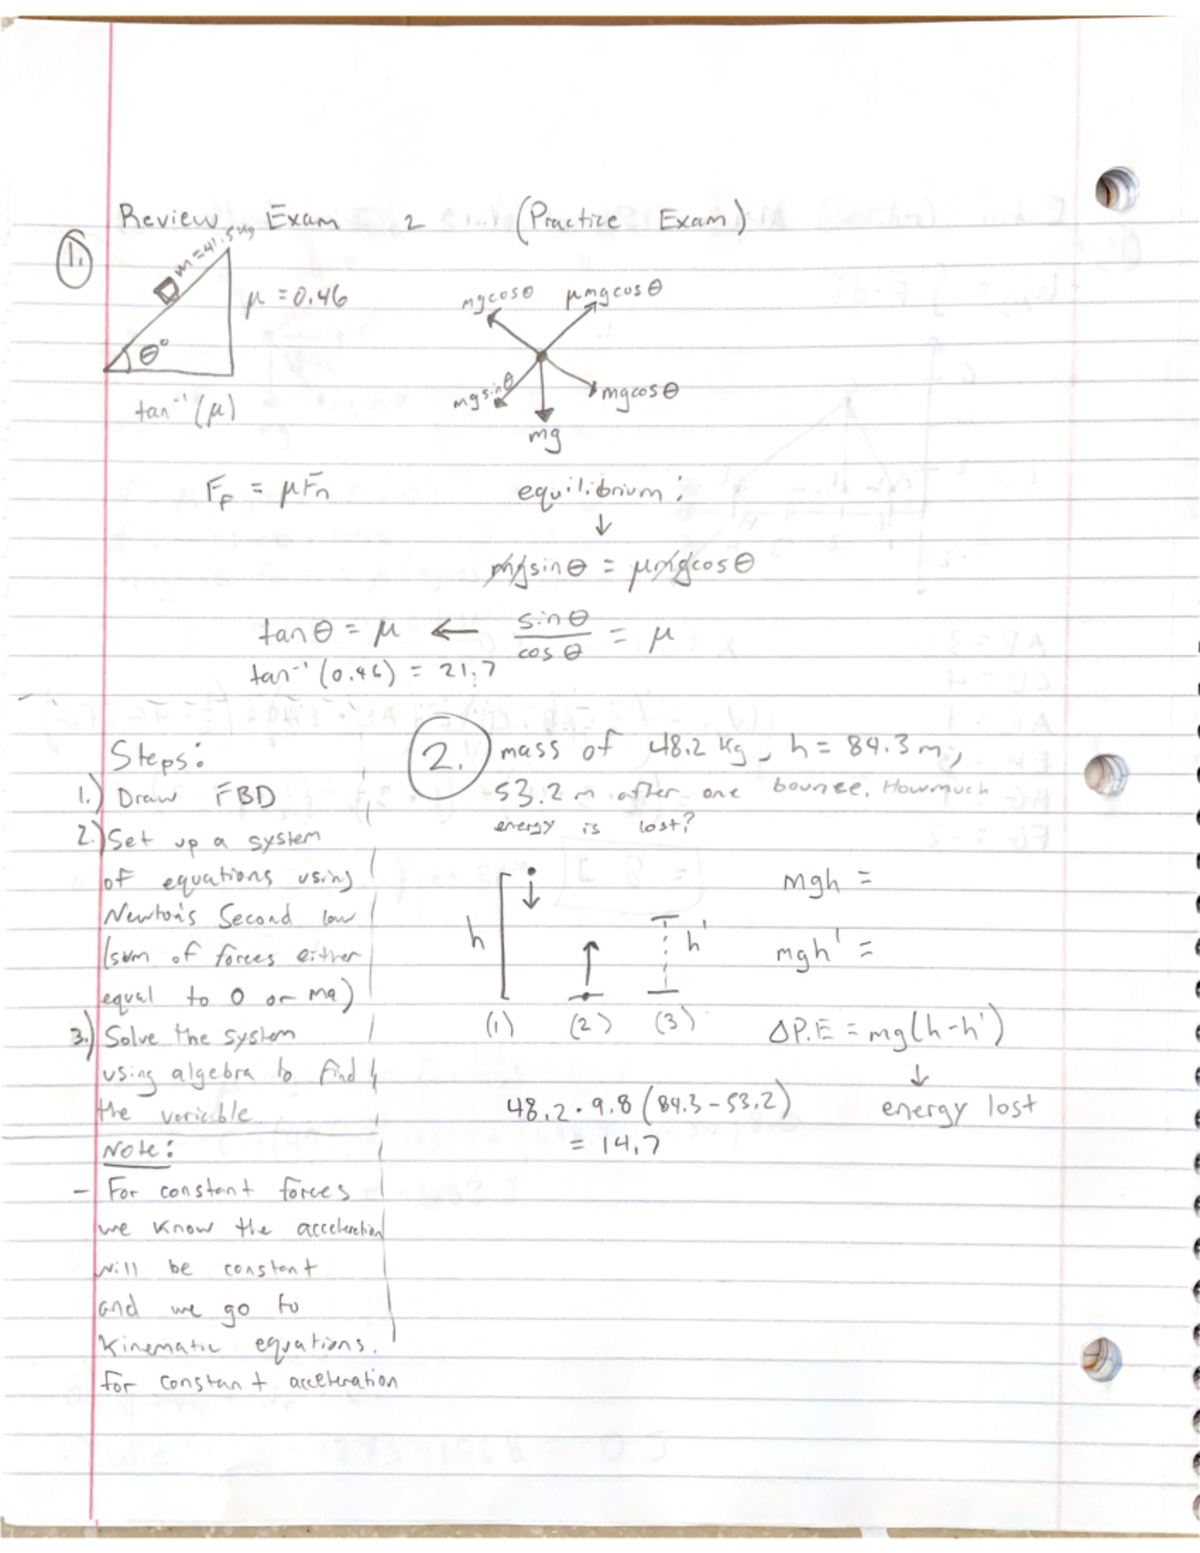 Review Exam 2 (Practice Exam)
1.
m = 41.5 kg
μ = 0.46
θ°
tan⁻¹(μ)
mgcosθ μmgcosθ
mgsinθ mgcosθ
mg
F_F = μFn equilibrium:
↓
mgsinθ = μmgcosθ
tanθ = μ ← sinθ/cosθ = μ
tan⁻¹(0.46) = 21.7
Steps:
1.) Draw FBD
2.) Set up a system
of equations using
Newton's Second law
(sum of forces either
equal to 0 or ma)
3.) Solve the system
using algebra to find
the variable
Note:
- For constant forces
we know the acceleration
will be constant
and we go to
Kinematic equations.
for constant acceleration
2. mass of 48.2 kg, h = 84.3 m,
53.2 m after one bounce. How much
energy is lost?
h h'
mgh =
mgh' =
(1) (2) (3)
ΔP.E = mg(h-h')
↓
energy lost
48.2 · 9.8 (84.3 - 53.2)
= 14.7